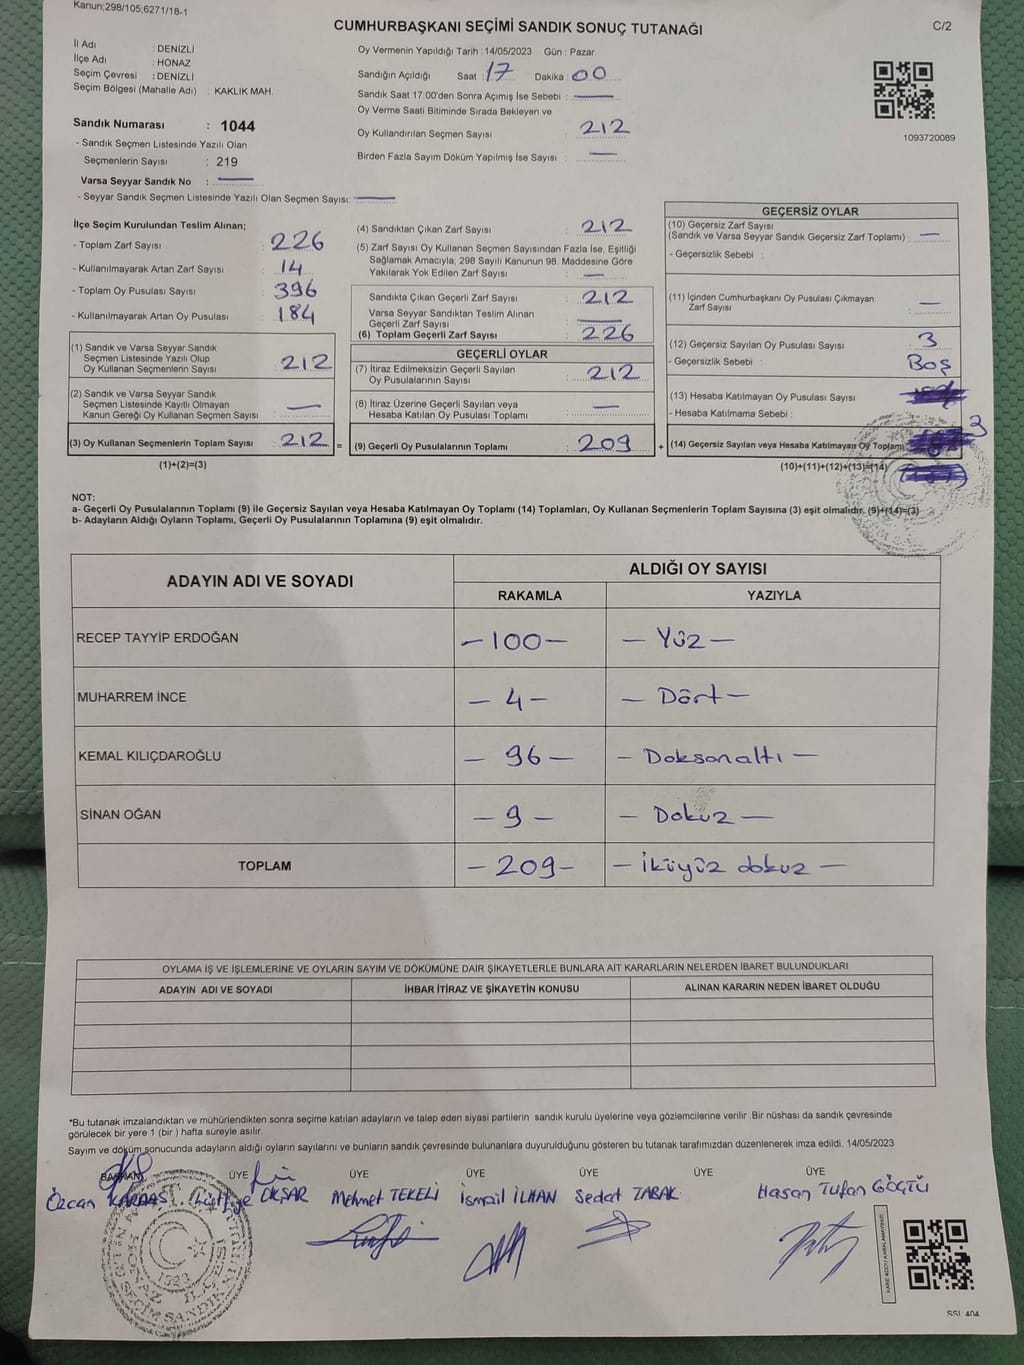 Kanun;298/105;6271/18-1
CUMHURBAŞKANI SEÇİMİ SANDIK SONUÇ TUTANAĞI
C/2
İl Adı : DENİZLİ
İlçe Adı : HONAZ
Seçim Çevresi : DENİZLİ
Seçim Bölgesi (Mahalle Adı) : KAKLIK MAH.
Sandık Numarası : 1044
- Sandık Seçmen Listesinde Yazılı Olan
Seçmenlerin Sayısı : 219
Varsa Seyyar Sandık No : —
- Seyyar Sandık Seçmen Listesinde Yazılı Olan Seçmen Sayısı: —
Oy Vermenin Yapıldığı Tarih :14/05/2023 Gün : Pazar
Sandığın Açıldığı Saat : 17 Dakika : 00
Sandık Saat 17:00'den Sonra Açımış İse Sebebi : —
Oy Verme Saati Bitiminde Sırada Bekleyen ve
Oy Kullandırılan Seçmen Sayısı : 212
Birden Fazla Sayım Döküm Yapılmış İse Sayısı : —
1093720089
İlçe Seçim Kurulundan Teslim Alınan;
- Toplam Zarf Sayısı : 226
- Kullanılmayarak Artan Zarf Sayısı : 14
- Toplam Oy Pusulası Sayısı : 396
- Kullanılmayarak Artan Oy Pusulası : 184
(1) Sandık ve Varsa Seyyar Sandık
Seçmen Listesinde Yazılı Olup
Oy Kullanan Seçmenlerin Sayısı : 212
(2) Sandık ve Varsa Seyyar Sandık
Seçmen Listesinde Kayıtlı Olmayan
Kanun Gereği Oy Kullanan Seçmen Sayısı : —
(3) Oy Kullanan Seçmenlerin Toplam Sayısı : 212 =
(1)+(2)=(3)
(4) Sandıktan Çıkan Zarf Sayısı : 212
(5) Zarf Sayısı Oy Kullanan Seçmen Sayısından Fazla İse, Eşitliği
Sağlamak Amacıyla; 298 Sayılı Kanunun 98. Maddesine Göre
Yakılarak Yok Edilen Zarf Sayısı : —
Sandıkta Çıkan Geçerli Zarf Sayısı : 212
Varsa Seyyar Sandıktan Teslim Alınan
Geçerli Zarf Sayısı : —
(6) Toplam Geçerli Zarf Sayısı : 226
GEÇERLİ OYLAR
(7) İtiraz Edilmeksizin Geçerli Sayılan
Oy Pusulalarının Sayısı : 212
(8) İtiraz Üzerine Geçerli Sayılan veya
Hesaba Katılan Oy Pusulası Toplamı : —
(9) Geçerli Oy Pusulalarının Toplamı : 209 +
GEÇERSİZ OYLAR
(10) Geçersiz Zarf Sayısı
(Sandık ve Varsa Seyyar Sandık Geçersiz Zarf Toplamı) : —
- Geçersizlik Sebebi :
(11) İçinden Cumhurbaşkanı Oy Pusulası Çıkmayan
Zarf Sayısı : —
(12) Geçersiz Sayılan Oy Pusulası Sayısı : 3
- Geçersizlik Sebebi : Boş
(13) Hesaba Katılmayan Oy Pusulası Sayısı
- Hesaba Katılmama Sebebi :
(14) Geçersiz Sayılan veya Hesaba Katılmayan Oy Toplamı 3
(10)+(11)+(12)+(13)=(14)
NOT:
a- Geçerli Oy Pusulalarının Toplamı (9) ile Geçersiz Sayılan veya Hesaba Katılmayan Oy Toplamı (14) Toplamları, Oy Kullanan Seçmenlerin Toplam Sayısına (3) eşit olmalıdır. (9)+(14)=(3)
b- Adayların Aldığı Oyların Toplamı, Geçerli Oy Pusulalarının Toplamına (9) eşit olmalıdır.
ADAYIN ADI VE SOYADI
ALDIĞI OY SAYISI
RAKAMLA YAZIYLA
RECEP TAYYİP ERDOĞAN — 100 — — Yüz —
MUHARREM İNCE — 4 — — Dört —
KEMAL KILIÇDAROĞLU — 96 — — Doksanaltı —
SİNAN OĞAN — 9 — — Dokuz —
TOPLAM — 209 — — İkiyüz dokuz —
OYLAMA İŞ VE İŞLEMLERİNE VE OYLARIN SAYIM VE DÖKÜMÜNE DAİR ŞİKAYETLERLE BUNLARA AİT KARARLARIN NELERDEN İBARET BULUNDUKLARI
ADAYIN ADI VE SOYADI İHBAR İTİRAZ VE ŞİKAYETİN KONUSU ALINAN KARARIN NEDEN İBARET OLDUĞU
*Bu tutanak imzalandıktan ve mühürlendikten sonra seçime katılan adayların ve talep eden siyasi partilerin sandık kurulu üyelerine veya gözlemcilerine verilir .Bir nüshası da sandık çevresinde
görülecek bir yere 1 (bir ) hafta süreyle asılır.
Sayım ve döküm sonucunda adayların aldığı oyların sayılarını ve bunların sandık çevresinde bulunanlara duyurulduğunu gösteren bu tutanak tarafımızdan düzenlenerek imza edildi. 14/05/2023
BAŞKAN ÜYE ÜYE ÜYE ÜYE ÜYE ÜYE
Özcan KARDAŞ Lütfiye OKŞAR Mehmet TEKELİ İsmail İLHAN Sedat TABAK Hasan Tufan GÖÇTÜ
KARE KODU KARALAMAYINIZ!
SSL 404